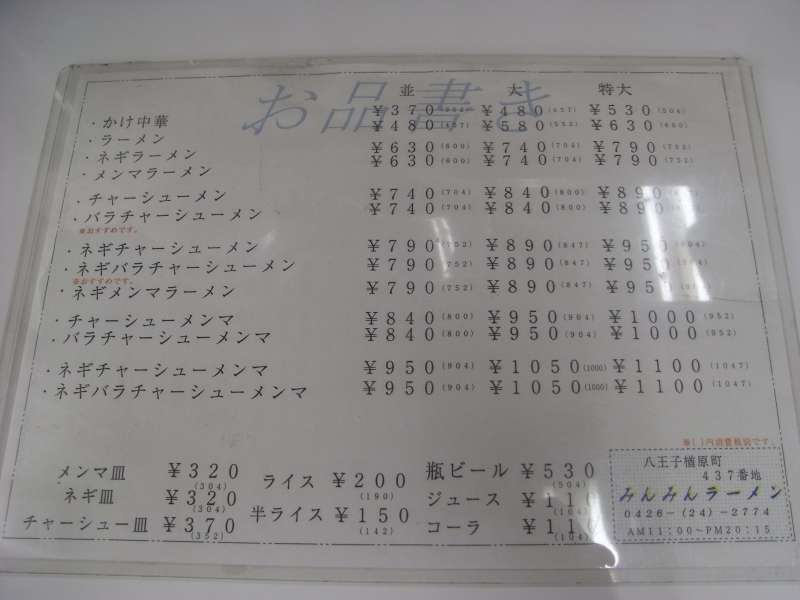 お品書き
並 大 特大
・かけ中華 ¥370 ¥480(457) ¥530(504)
・ラーメン ¥480(457) ¥580(552) ¥630(600)
・ネギラーメン ¥630(600) ¥740(704) ¥790(752)
・メンマラーメン ¥630(600) ¥740(704) ¥790(752)
・チャーシューメン ¥740(704) ¥840(800) ¥890
・バラチャーシューメン ¥740(704) ¥840(800) ¥890
※おすすめです。
・ネギチャーシューメン ¥790(752) ¥890(847) ¥950(904)
・ネギバラチャーシューメン ¥790(752) ¥890(847) ¥950(904)
※おすすめです。
・ネギメンマラーメン ¥790(752) ¥890(847) ¥950
・チャーシューメンマ ¥840(800) ¥950(904) ¥1000(952)
・バラチャーシューメンマ ¥840(800) ¥950(904) ¥1000(952)
・ネギチャーシューメンマ ¥950(904) ¥1050(1000) ¥1100(1047)
・ネギバラチャーシューメンマ ¥950(904) ¥1050(1000) ¥1100(1047)
※( )内消費税別です。
メンマ皿 ¥320(304)
ネギ皿 ¥320(304)
チャーシュー皿 ¥370(352)
ライス ¥200(190)
半ライス ¥150(142)
瓶ビール ¥530(504)
ジュース ¥110(104)
コーラ ¥110(104)
八王子楢原町
437番地
みんみんラーメン
0426-(24)-2774
AM11:00~PM20:15